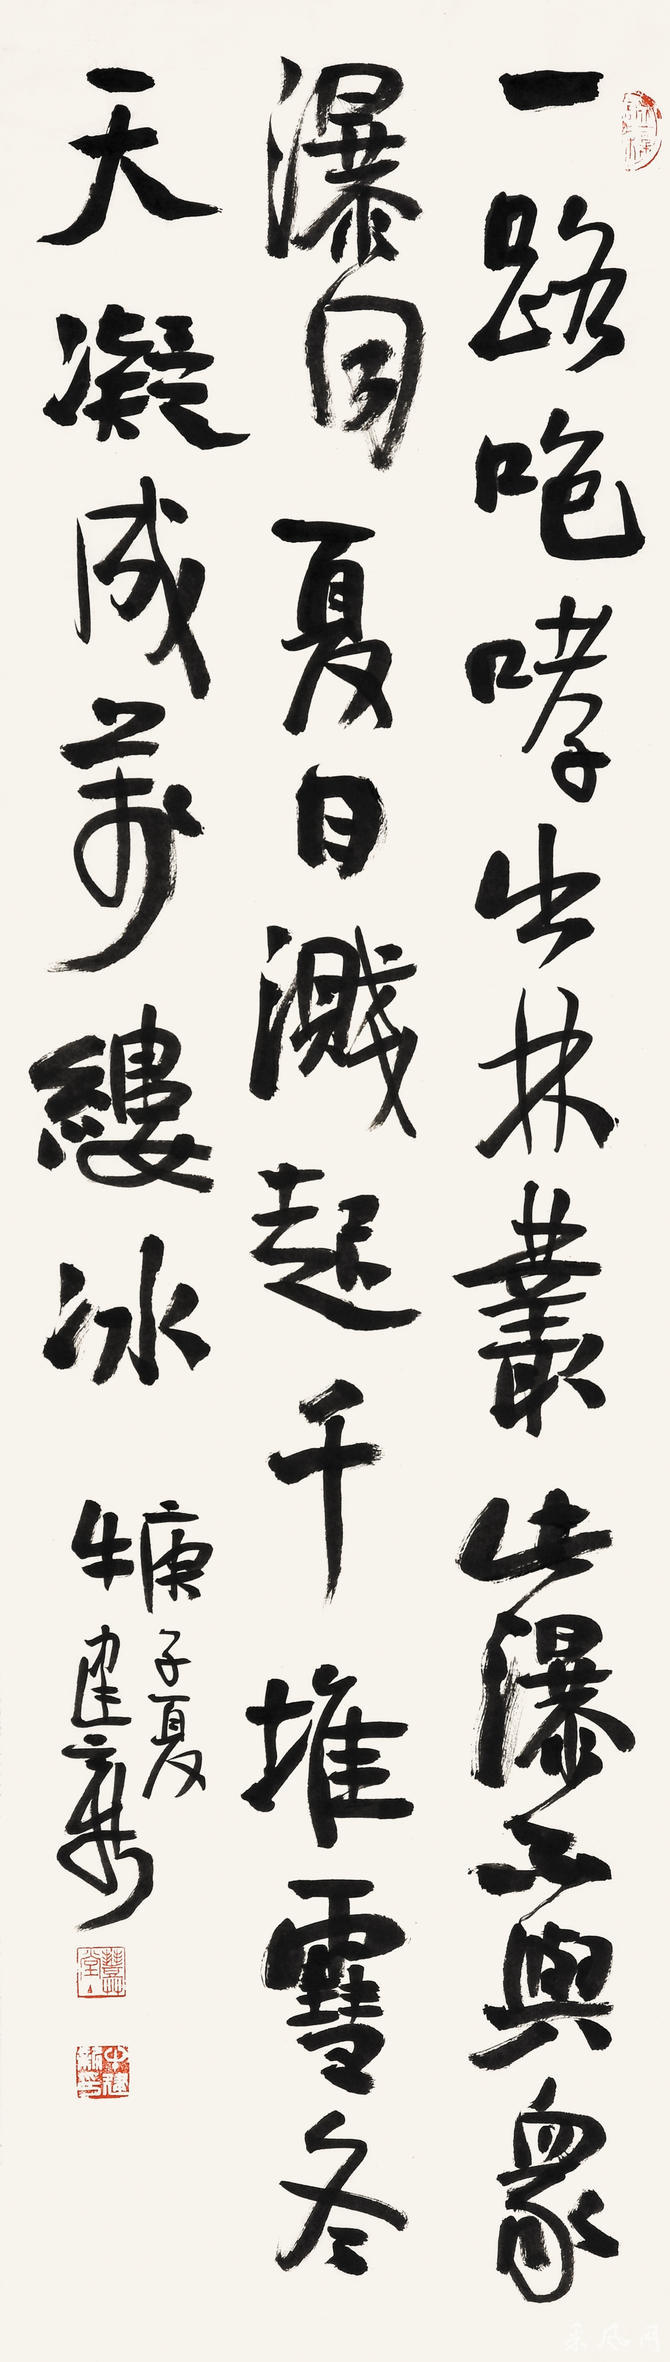 一路咆哮出林叢此瀑不與衆
瀑同夏日濺起千堆雪冬
天凝成萬縷冰
庚子夏
牛建新
采风网